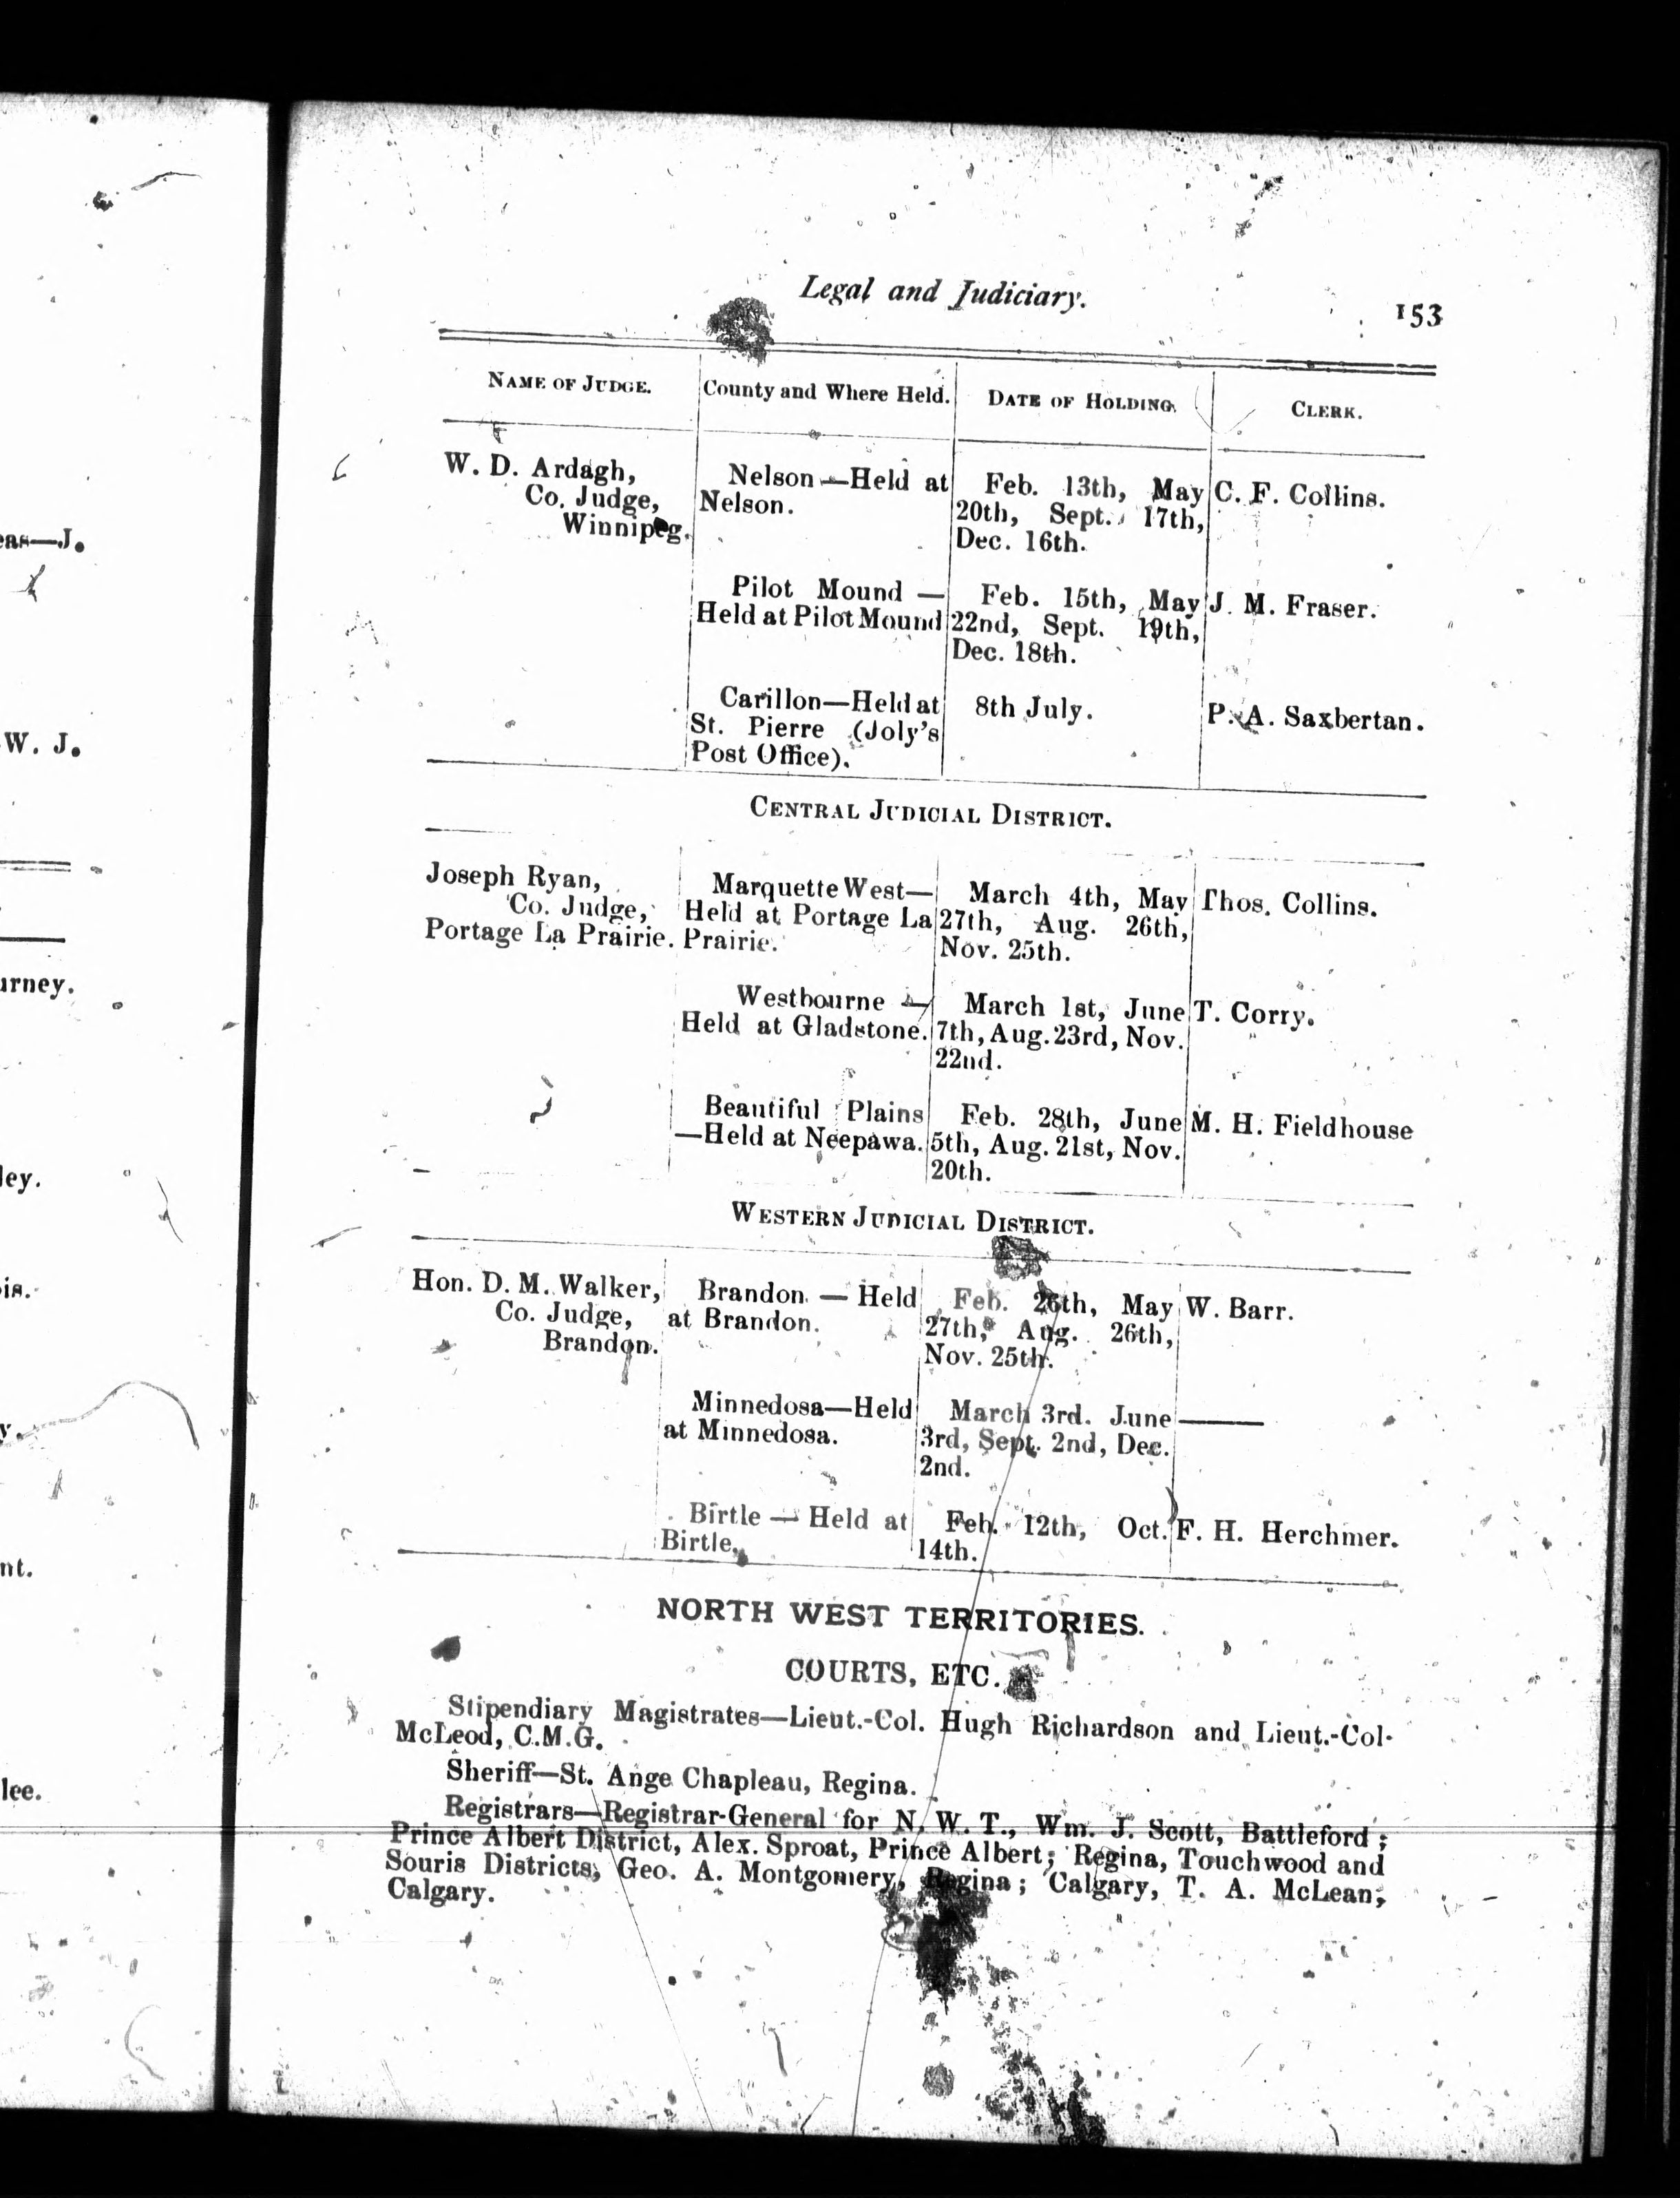 Legal and Judiciary.
153
NAME OF JUDGE. County and Where Held. DATE OF HOLDING. CLERK.
W. D. Ardagh, Nelson—Held at Feb. 13th, May C. F. Collins.
Co. Judge, Nelson. 20th, Sept. 17th,
Winnipeg. Dec. 16th.
Pilot Mound — Feb. 15th, May J. M. Fraser.
Held at Pilot Mound 22nd, Sept. 19th,
Dec. 18th.
Carillon—Held at 8th July. P. A. Saxbertan.
St. Pierre (Joly's
Post Office).
CENTRAL JUDICIAL DISTRICT.
Joseph Ryan, Marquette West— March 4th, May Thos. Collins.
Co. Judge, Held at Portage La 27th, Aug. 26th,
Portage La Prairie. Prairie. Nov. 25th.
Westbourne — March 1st, June T. Corry.
Held at Gladstone. 7th, Aug. 23rd, Nov.
22nd.
Beautiful Plains Feb. 28th, June M. H. Fieldhouse
—Held at Neepawa. 5th, Aug. 21st, Nov.
20th.
WESTERN JUDICIAL DISTRICT.
Hon. D. M. Walker, Brandon — Held Feb. 26th, May W. Barr.
Co. Judge, at Brandon. 27th, Aug. 26th,
Brandon. Nov. 25th.
Minnedosa—Held March 3rd. June ———
at Minnedosa. 3rd, Sept. 2nd, Dec.
2nd.
Birtle — Held at Feb. 12th, Oct. F. H. Herchmer.
Birtle. 14th.
NORTH WEST TERRITORIES.
COURTS, ETC.
Stipendiary Magistrates—Lieut.-Col. Hugh Richardson and Lieut.-Col.
McLeod, C.M.G.
Sheriff—St. Ange Chapleau, Regina.
Registrars—Registrar-General for N. W. T., Wm. J. Scott, Battleford;
Prince Albert District, Alex. Sproat, Prince Albert; Regina, Touchwood and
Souris Districts, Geo. A. Montgomery, Regina; Calgary, T. A. McLean,
Calgary.